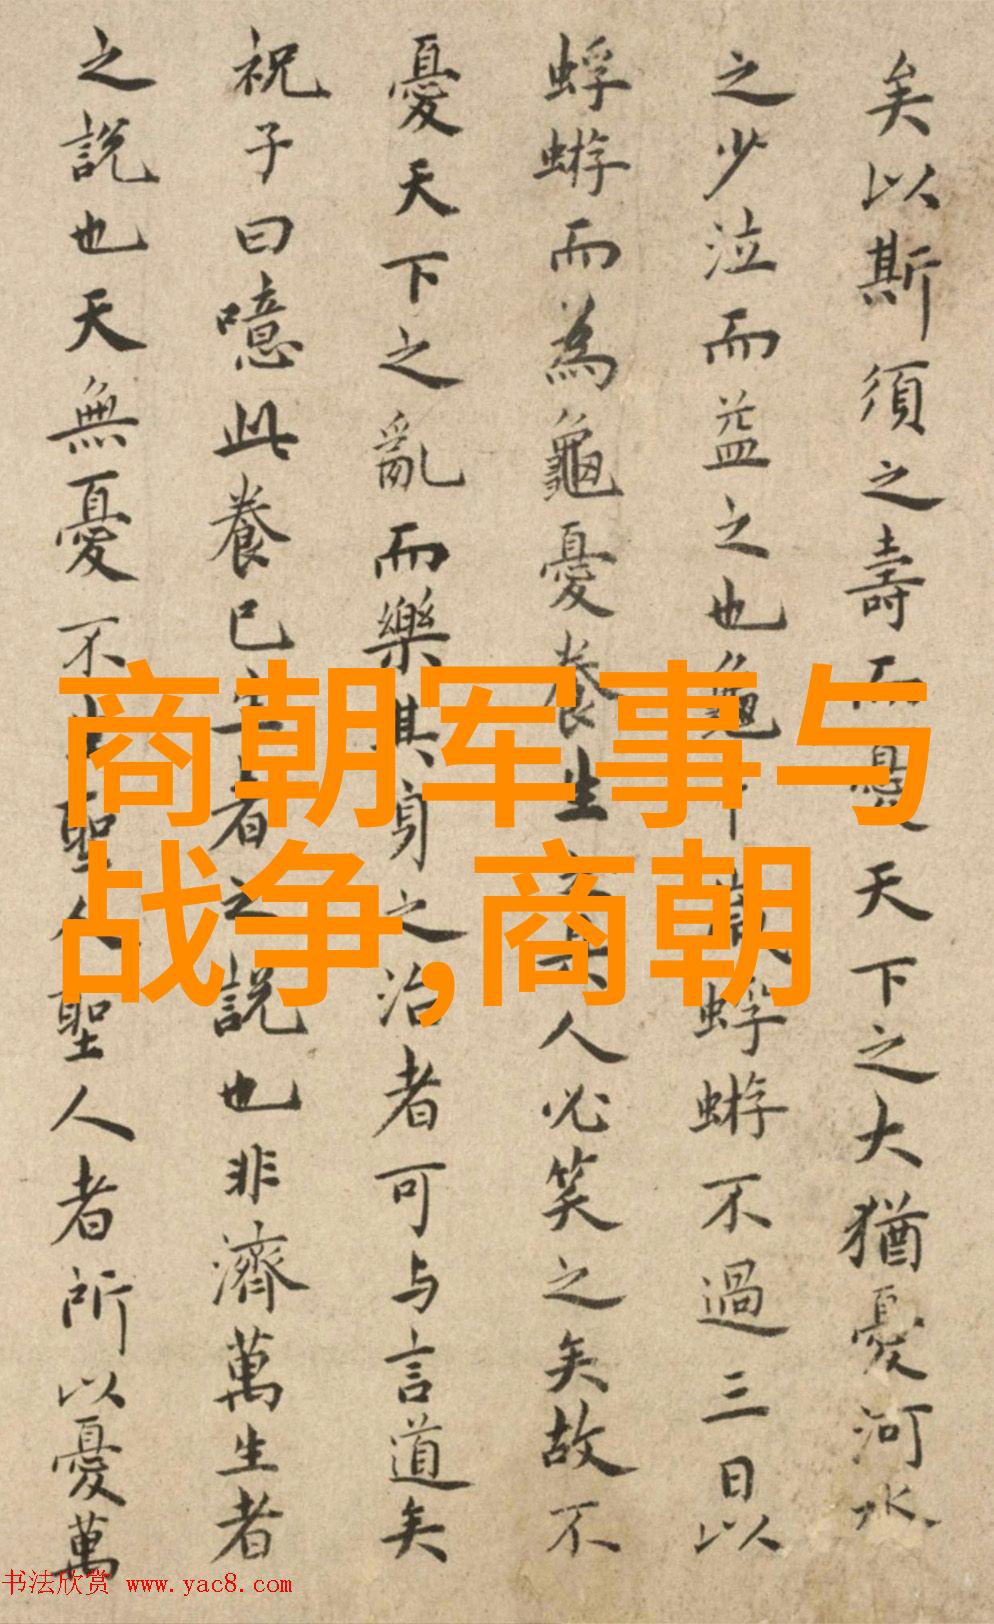 矣以斯須之壽而憂天下之大猶憂河水
之少泣而益之也龜 蜉蝣不過三日以
蜉蝣而為龜憂養生 人必笑之矣故不
憂天下之亂而樂其身之治者可与言道矣
祝子曰噫此養已生者之說也非濟萬生者
之說也天無憂不 聖人聖人者所以憂萬
商朝军事与
战争,商朝
书法欣赏 www.yac8.com